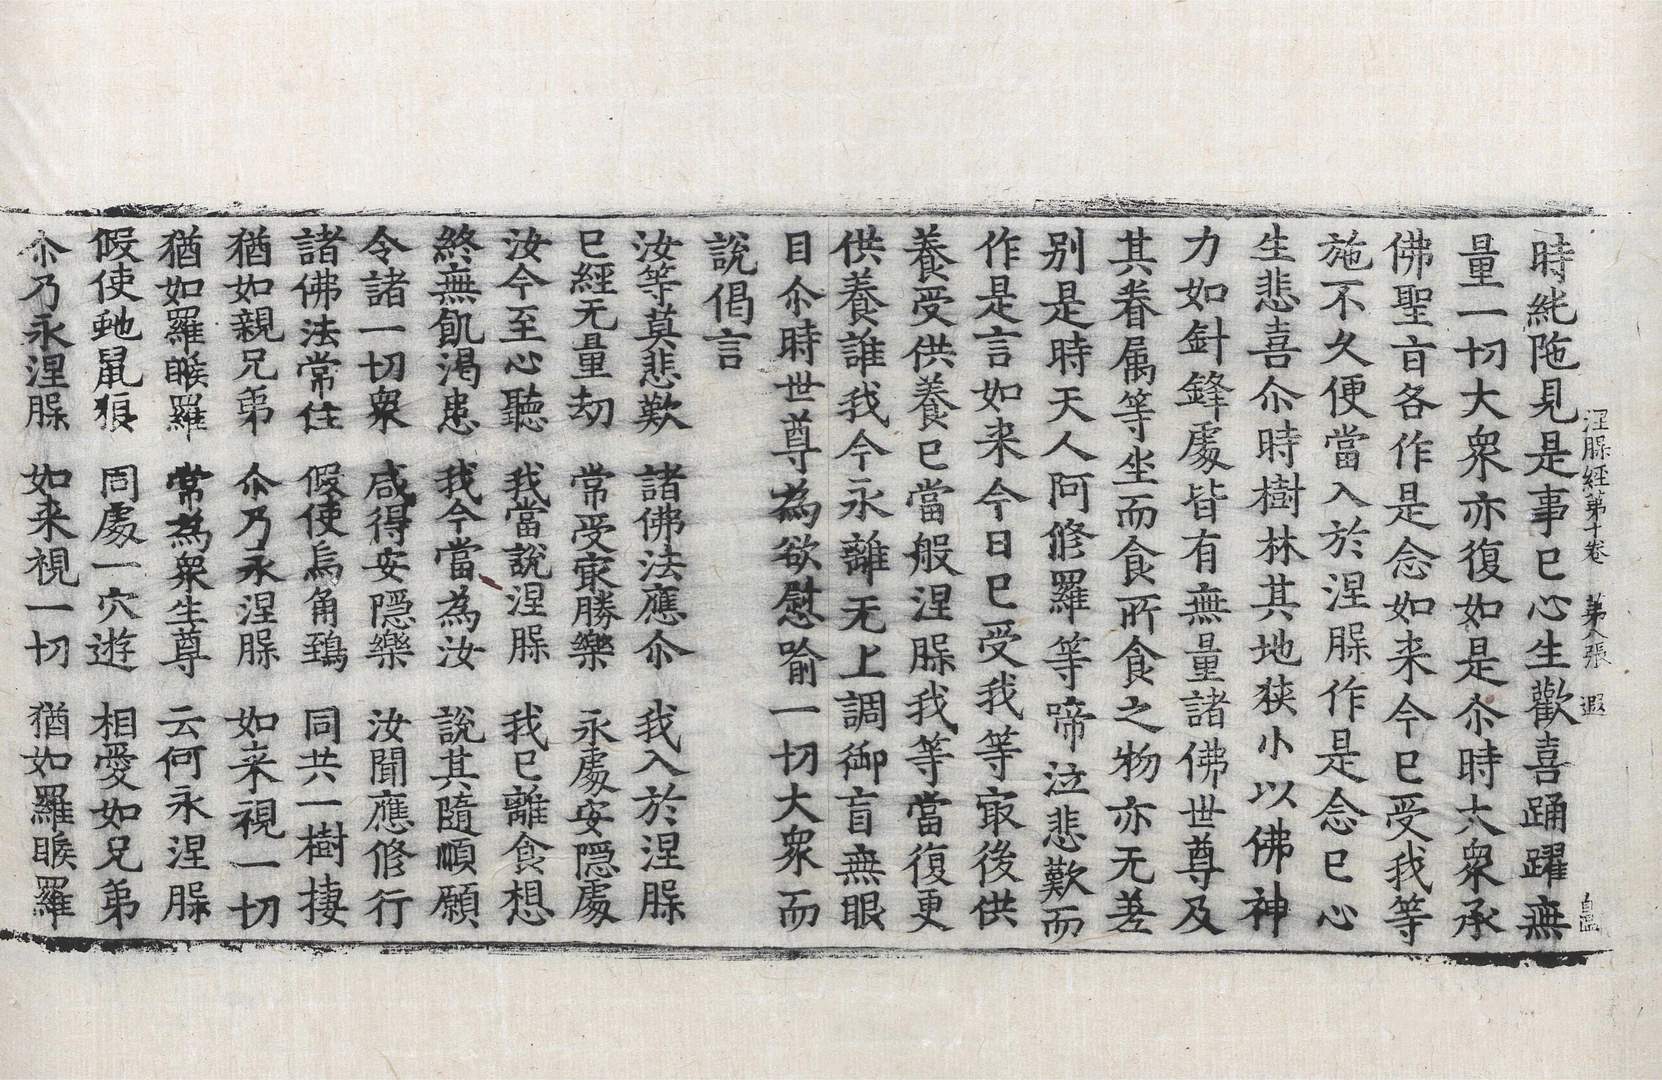 涅槃經第十卷 第八張 遐
時純陁見是事已心生歡喜踊躍無
量一切大衆亦復如是尒時大衆承
佛聖旨各作是念如来今已受我等
施不久便當入於涅槃作是念已心
生悲喜尒時樹林其地狭小以佛神
力如針鋒處皆有無量諸佛世尊及
其眷属等坐而食所食之物亦无差
别是時天人阿修羅等啼泣悲歎而
作是言如来今日已受我等㝡後供
養受供養已當般涅槃我等當復更
供養誰我今永離无上調御盲無眼
目尒時世尊為欲慰喻一切大衆而
說偈言
汝等莫悲歎 諸佛法應尒 我入於涅槃
已經无量劫 常受㝡勝樂 永處安隱處
汝今至心聽 我當說涅槃 我已離食想
終無飢渴患 我今當為汝 說其隨順願
令諸一切衆 咸得安隱樂 汝聞應修行
諸佛法常住 假使烏角鵄 同共一樹捿
猶如親兄弟 尒乃永涅槃 如来視一切
猶如羅睺羅 常為衆生尊 云何永涅槃
假使虵鼠狼 同處一穴遊 相愛如兄弟
尒乃永涅槃 如来視一切 猶如羅睺羅